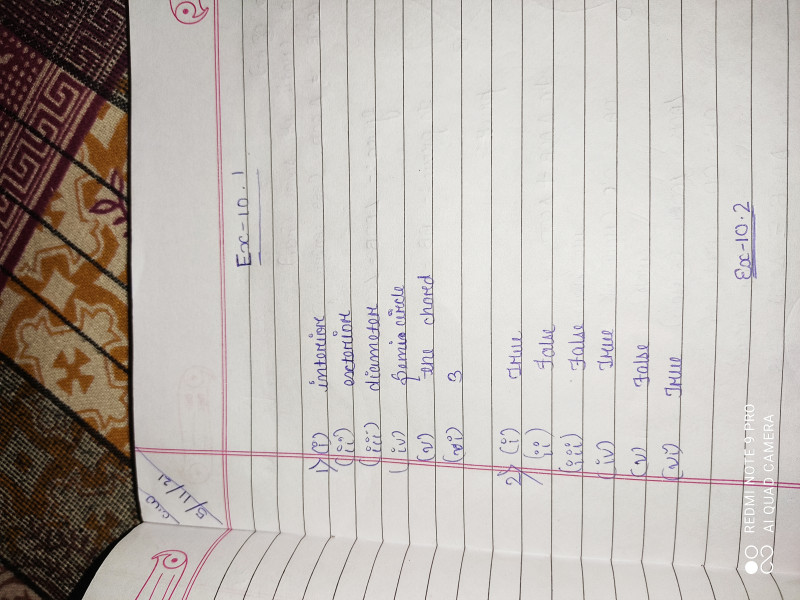 cw
5/11/21
Ex-10.1
1) (i) interior
(ii) exterior
(iii) diameter
(iv) semi circle
(v) the chored
(vi) 3
2) (i) True
(ii) False
(iii) False
(iv) True
(v) False
(vi) True
Ex-10.2
REDMI NOTE 9 PRO
AI QUAD CAMERA